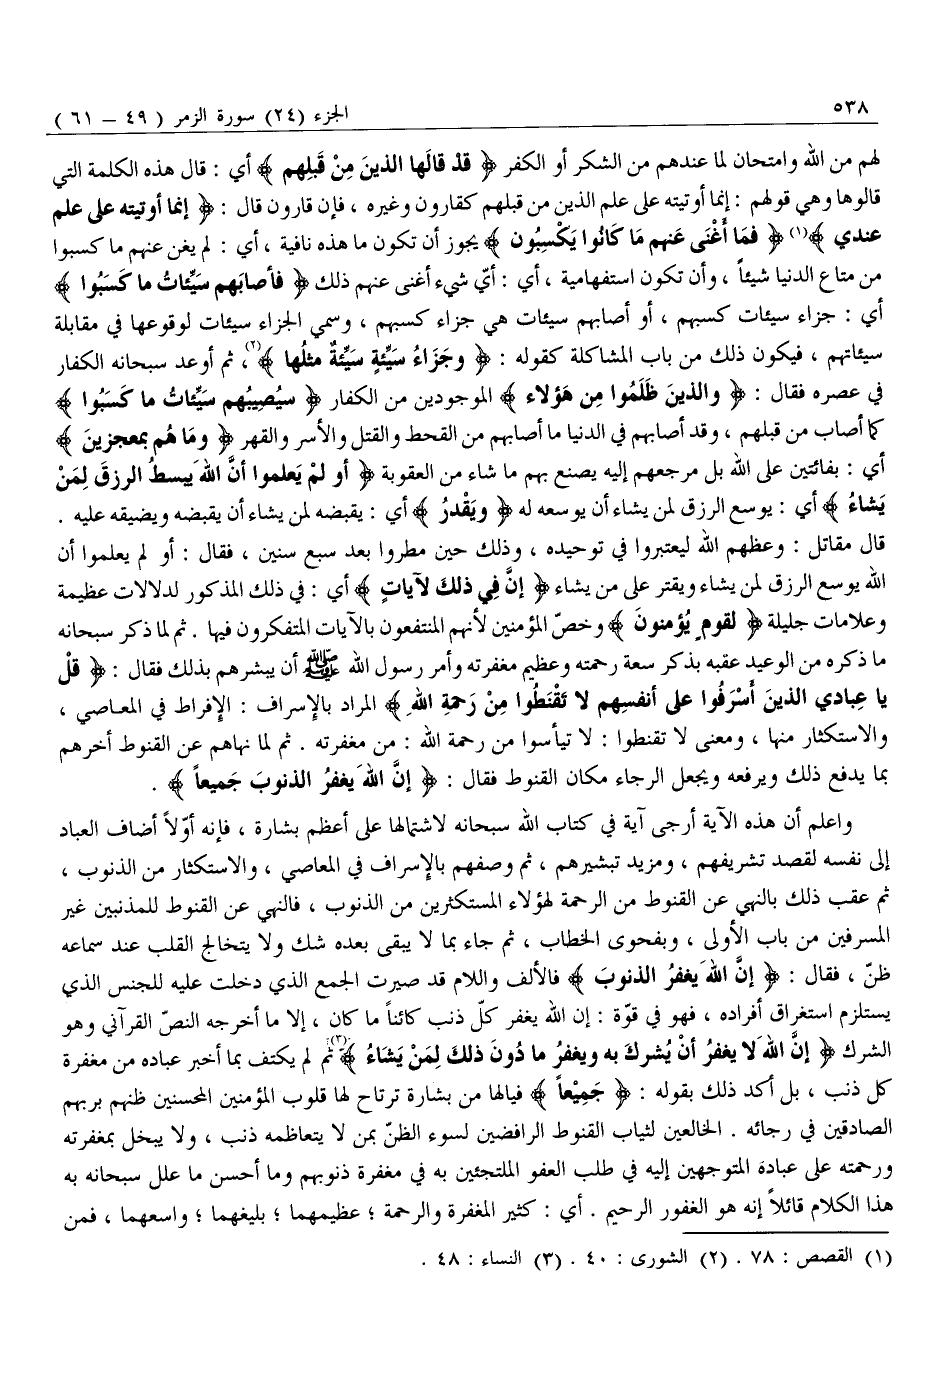 ٥٣٨
الجزء (٢٤) سورة الزمر ( ٤٩ – ٦١ )
لهم من الله وامتحان لما عندهم من الشكر أو الكفر ﴿ قدْ قالَها الذينَ مِنْ قَبلِهم ﴾ أي : قال هذه الكلمة التي
قالوها وهي قولهم : إنما أوتيته على علم الذين من قبلهم كقارون وغيره ، فإن قارون قال : ﴿ إنما أوتيته على علم
عندي ﴾(١) ﴿ فمَا أَغْنَى عَنهم مَا كَانُوا يَكْسِبُون ﴾ يجوز أن تكون ما هذه نافية ، أي : لم يغن عنهم ما كسبوا
من متاع الدنيا شيئاً ، وأن تكون استفهامية ، أي : أيّ شيء أغنى عنهم ذلك ﴿ فأصابَهم سَيِّئاتُ ما كَسَبُوا ﴾
أي : جزاء سيئات كسبهم ، أو أصابهم سيئات هي جزاء كسبهم ، وسمي الجزاء سيئات لوقوعها في مقابلة
سيئاتهم ، فيكون ذلك من باب المشاكلة كقوله : ﴿ وجَزَاءُ سَيِّئةٍ سَيِّئةٌ مثلُها ﴾(٢)، ثم أوعد سبحانه الكفار
في عصره فقال : ﴿ والذينَ ظَلَمُوا مِن هَؤلاء ﴾ الموجودين من الكفار ﴿ سيُصيبُهم سَيِّئاتُ ما كَسَبُوا ﴾
كما أصاب من قبلهم ، وقد أصابهم في الدنيا ما أصابهم من القحط والقتل والأسر والقهر ﴿ ومَا هُم بمعجزينَ ﴾
أي : بفائتين على الله بل مرجعهم إليه يصنع بهم ما شاء من العقوبة ﴿ أو لمْ يَعلموا أنَّ اللهَ يبسطُ الرزقَ لِمَنْ
يَشاءُ ﴾ أي : يوسع الرزق لمن يشاء أن يوسعه له ﴿ ويَقْدرُ ﴾ أي : يقبضه لمن يشاء أن يقبضه ويضيقه عليه .
قال مقاتل : وعظهم الله ليعتبروا في توحيده ، وذلك حين مطروا بعد سبع سنين ، فقال : أو لم يعلموا أن
الله يوسع الرزق لمن يشاء ويقتر على من يشاء ﴿ إنَّ فِي ذلكَ لآياتٍ ﴾ أي : في ذلك المذكور لدلالات عظيمة
وعلامات جليلة ﴿ لقومٍ يُؤمنونَ ﴾ وخصّ المؤمنين لأنهم المنتفعون بالآيات المتفكرون فيها . ثم لما ذكر سبحانه
ما ذكره من الوعيد عقبه بذكر سعة رحمته وعظيم مغفرته وأمر رسول الله ﷺ أن يبشرهم بذلك فقال : ﴿ قلْ
يا عِبادي الذينَ أَسْرَفُوا على أنفسِهم لا تَقْنَطُوا مِنْ رَحمةِ اللهِ ﴾ المراد بالإسراف : الإفراط في المعاصي ،
والاستكثار منها ، ومعنى لا تقنطوا : لا تيأسوا من رحمة الله : من مغفرته . ثم لما نهاهم عن القنوط أخبرهم
بما يدفع ذلك ويرفعه ويجعل الرجاء مكان القنوط فقال : ﴿ إنَّ اللهَ يغفرُ الذنوبَ جَميعاً ﴾ .
واعلم أن هذه الآية أرجى آية في كتاب الله سبحانه لاشتمالها على أعظم بشارة ، فإنه أوّلاً أضاف العباد
إلى نفسه لقصد تشريفهم ، ومزيد تبشيرهم ، ثم وصفهم بالإسراف في المعاصي ، والاستكثار من الذنوب ،
ثم عقب ذلك بالنهي عن القنوط من الرحمة لهؤلاء المستكثرين من الذنوب ، فالنهي عن القنوط للمذنبين غير
المسرفين من باب الأولى ، وبفحوى الخطاب ، ثم جاء بما لا يبقى بعده شك ولا يتخالج القلب عند سماعه
ظنّ ، فقال : ﴿ إنَّ اللهَ يغفرُ الذنوبَ ﴾ فالألف واللام قد صيرت الجمع الذي دخلت عليه للجنس الذي
يستلزم استغراق أفراده ، فهو في قوّة : إن الله يغفر كلّ ذنب كائناً ما كان ، إلا ما أخرجه النصّ القرآني وهو
الشرك ﴿ إنَّ اللهَ لا يغفرُ أنْ يُشركَ به ويغفرُ ما دُونَ ذلكَ لِمَنْ يَشَاءُ ﴾(٣) ثم لم يكتف بما أخبر عباده من مغفرة
كل ذنب ، بل أكد ذلك بقوله : ﴿ جَمِيْعاً ﴾ فيالها من بشارة ترتاح لها قلوب المؤمنين المحسنين ظنهم بربهم
الصادقين في رجائه . الخالعين لثياب القنوط الرافضين لسوء الظنّ بمن لا يتعاظمه ذنب ، ولا يبخل بمغفرته
ورحمته على عباده المتوجهين إليه في طلب العفو الملتجئين به في مغفرة ذنوبهم وما أحسن ما علل سبحانه به
هذا الكلام قائلاً إنه هو الغفور الرحيم . أي : كثير المغفرة والرحمة ؛ عظيمهما ؛ بليغهما ؛ واسعهما ، فمن
(١) القصص : ٧٨ . (٢) الشورى : ٤٠ . (٣) النساء : ٤٨ .